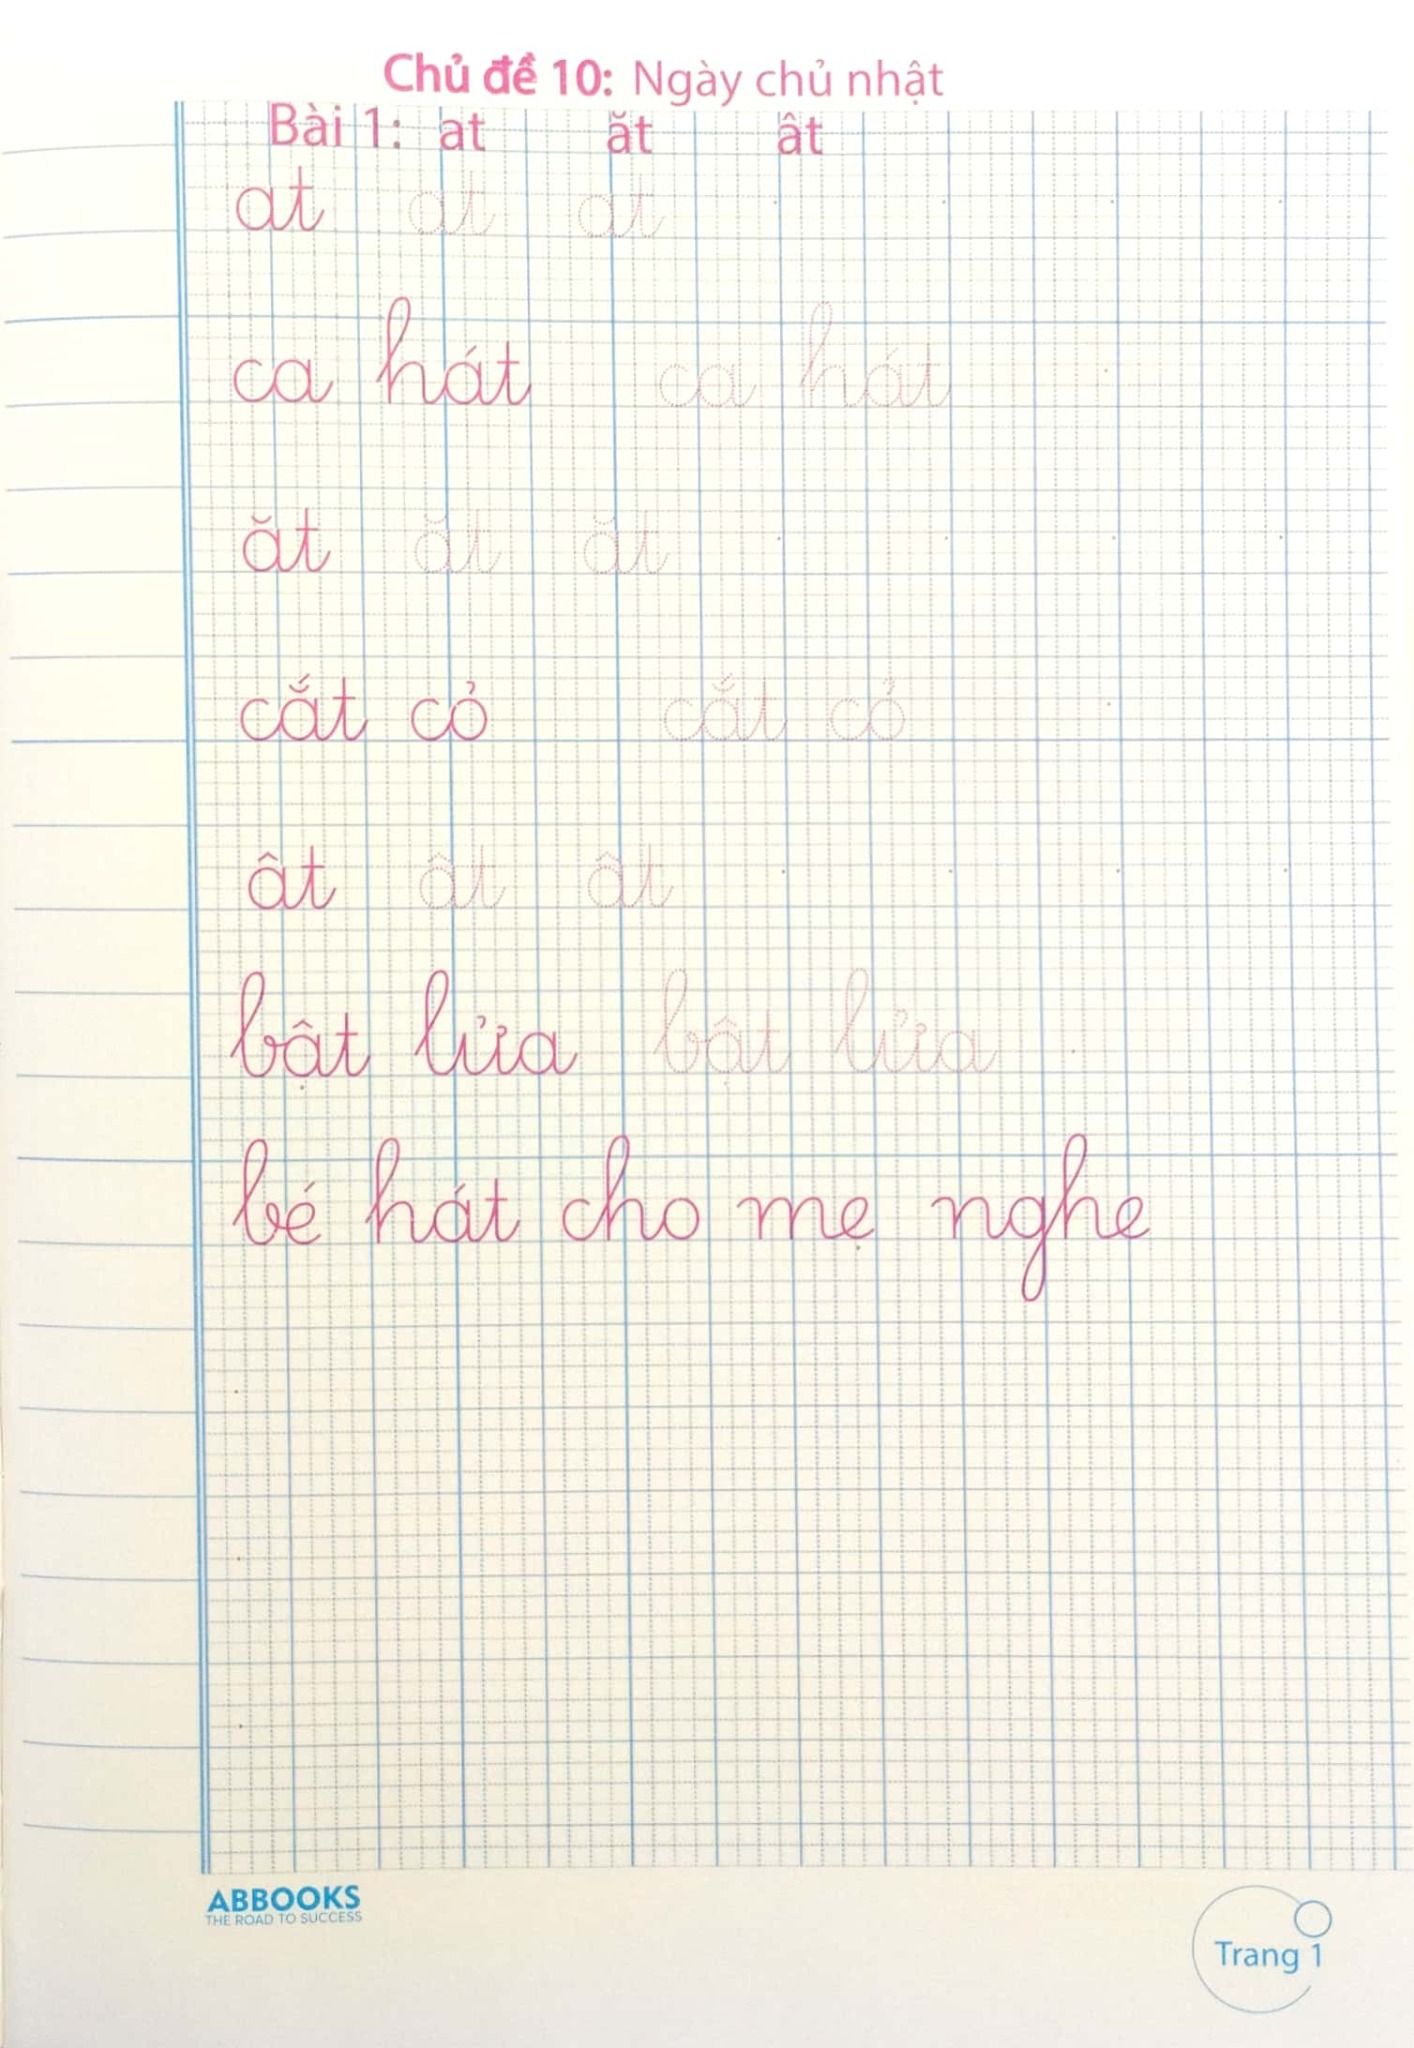 Chủ đề 10: Ngày chủ nhật
Bài 1: at ăt ât
at at at
ca hát ca hát
ăt ăt ăt
cắt cỏ cắt cỏ
ât ât ât
bật lửa bật lửa
bé hát cho mẹ nghe
ABBOOKS
THE ROAD TO SUCCESS
Trang 1